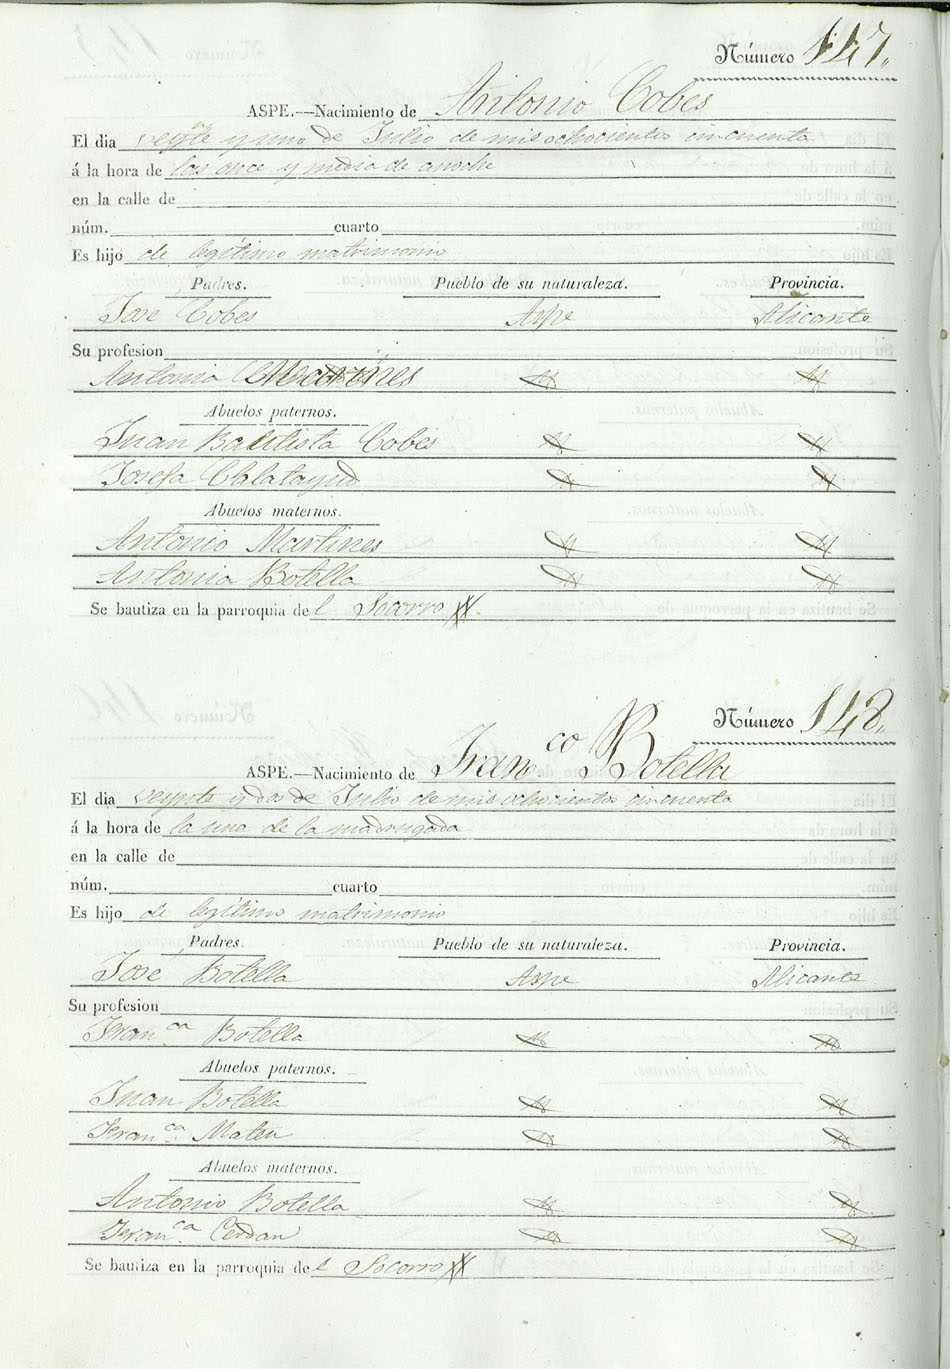 Número 147.
ASPE.—Nacimiento de Antonio Cobes
El dia veynte y uno de Julio de mis ochocientos cincuenta
á la hora de las once y media de anoche
en la calle de
núm. cuarto
Es hijo de legitimo matrimonio
Padres. Pueblo de su naturaleza. Provincia.
José Cobes Aspe Alicante
Su profesion
Antonia
Abuelos paternos.
Juan Bautista Cobes
Josefa Calatayud
Abuelos maternos.
Antonio Martines
Antonia Botella
Se bautiza en la parroquia del Socorro
Número 148.
ASPE.—Nacimiento de Franco Botella
El dia veynte y dos de Julio de mis ochocientos cincuenta
á la hora de la una de la madrugada
en la calle de
núm. cuarto
Es hijo de legitimo matrimonio
Padres. Pueblo de su naturaleza. Provincia.
José Botella Aspe Alicante
Su profesion
Franca Botella
Abuelos paternos.
Juan Botella
Franca Mateu
Abuelos maternos.
Antonio Botella
Franca Cerdan
Se bautiza en la parroquia del Socorro